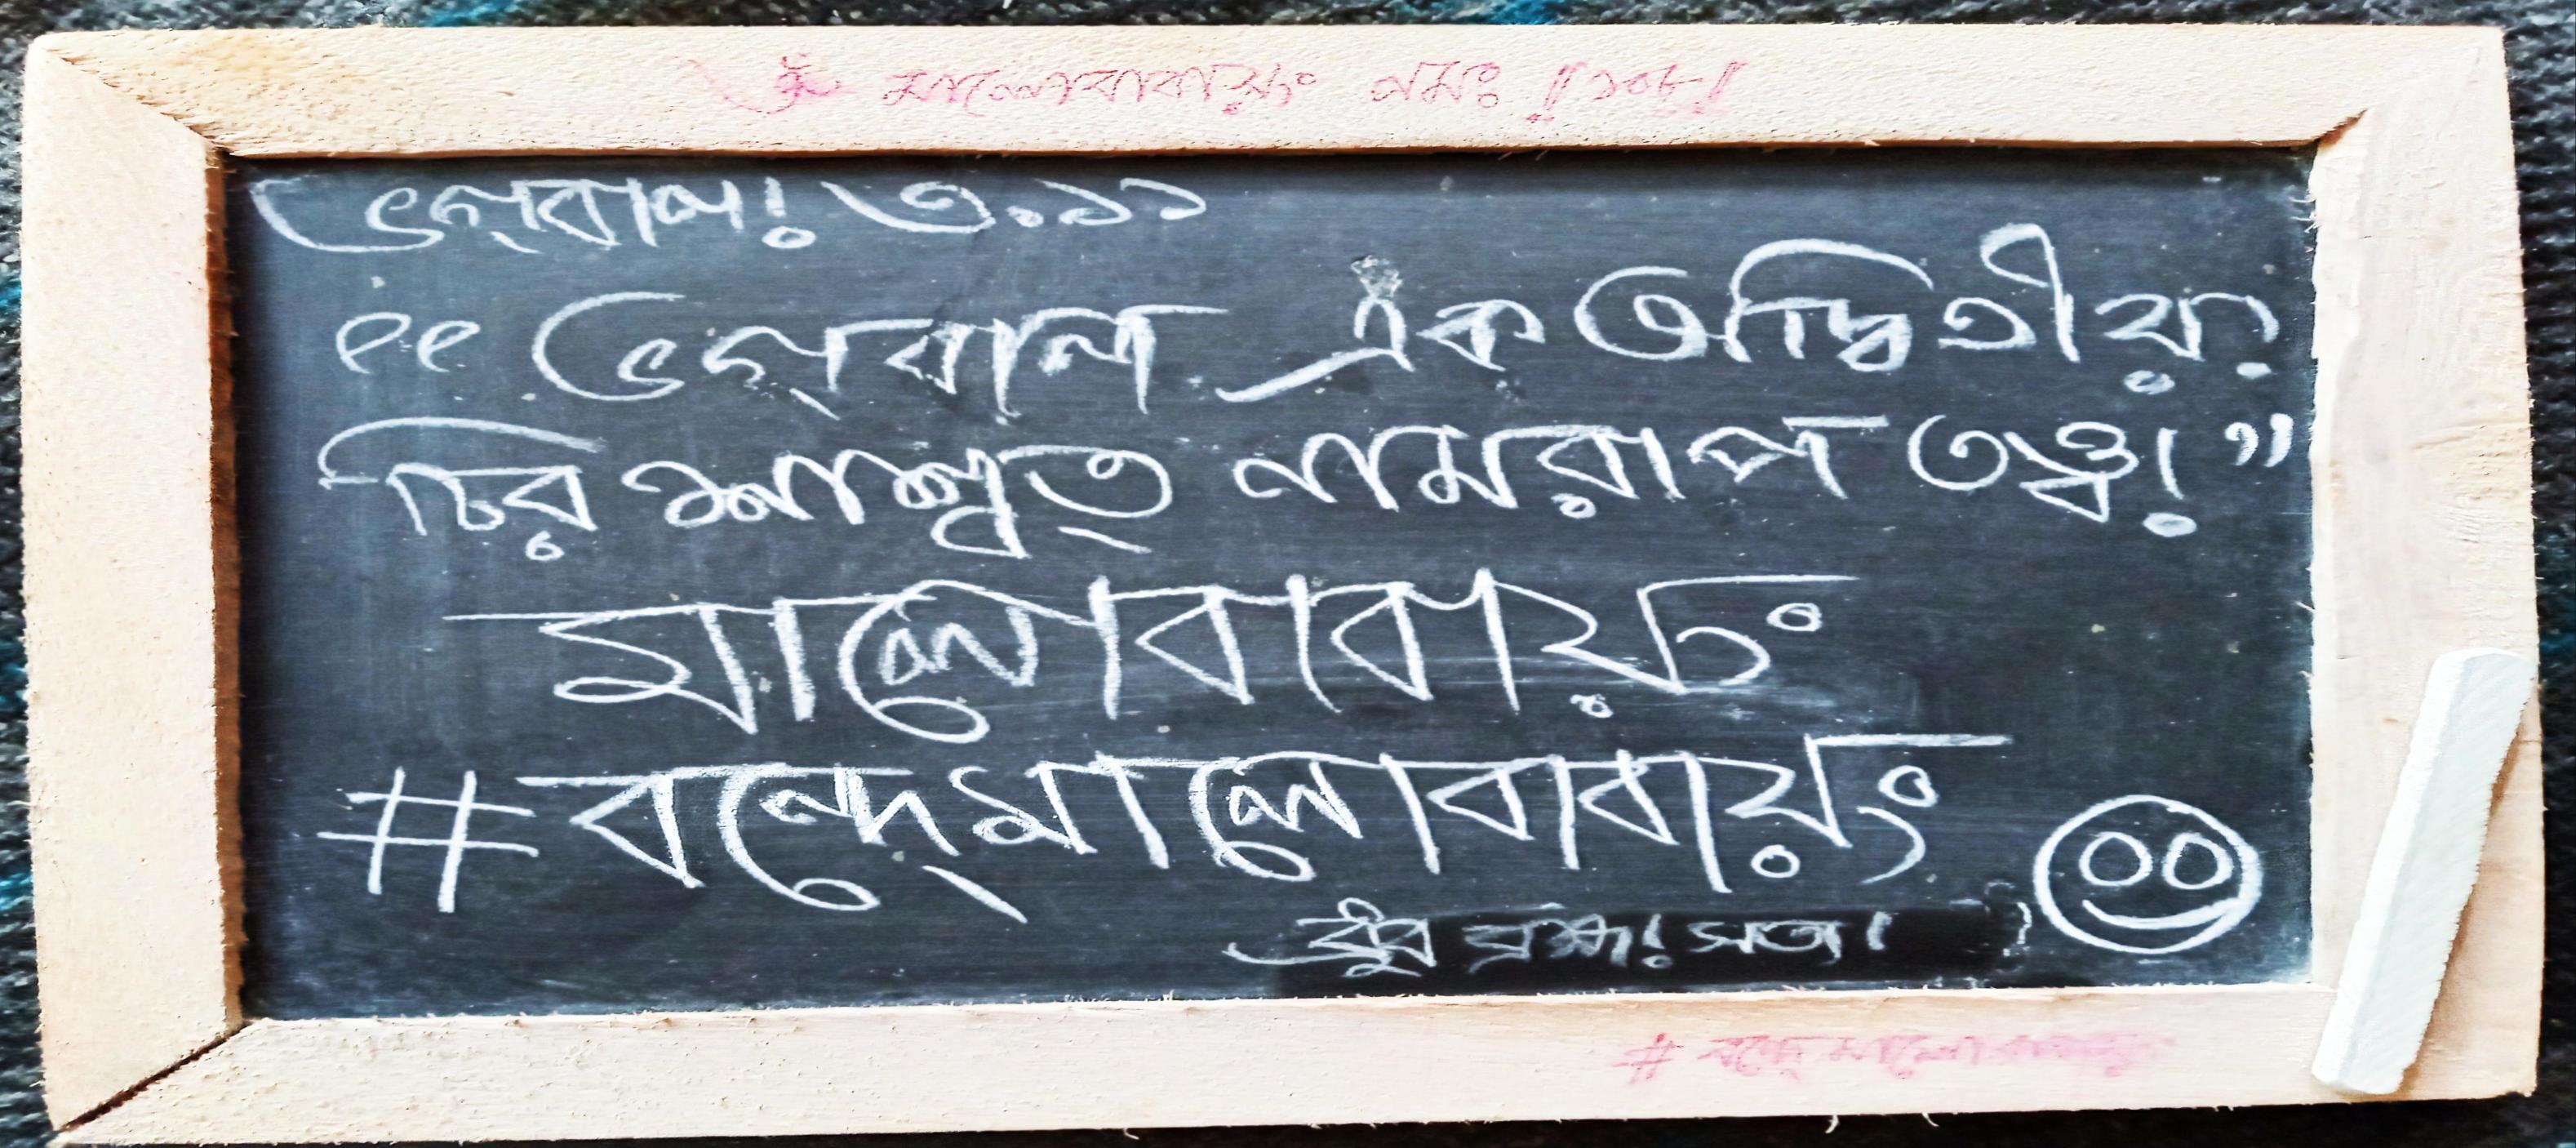 ঁ মালোবাবায়ং নমঃ ॥১০৮॥
ভগবান! ৩.১১
“ভগবান এক অদ্বিতীয়!
চির শাশ্বত্ নামরূপ তত্ত্ব!”
মালোবাবায়ং
#বন্দেমালোবাবায়ং
ধ্রুব ব্রহ্ম! সত্য!
#বন্দেমালোবাবায়ং